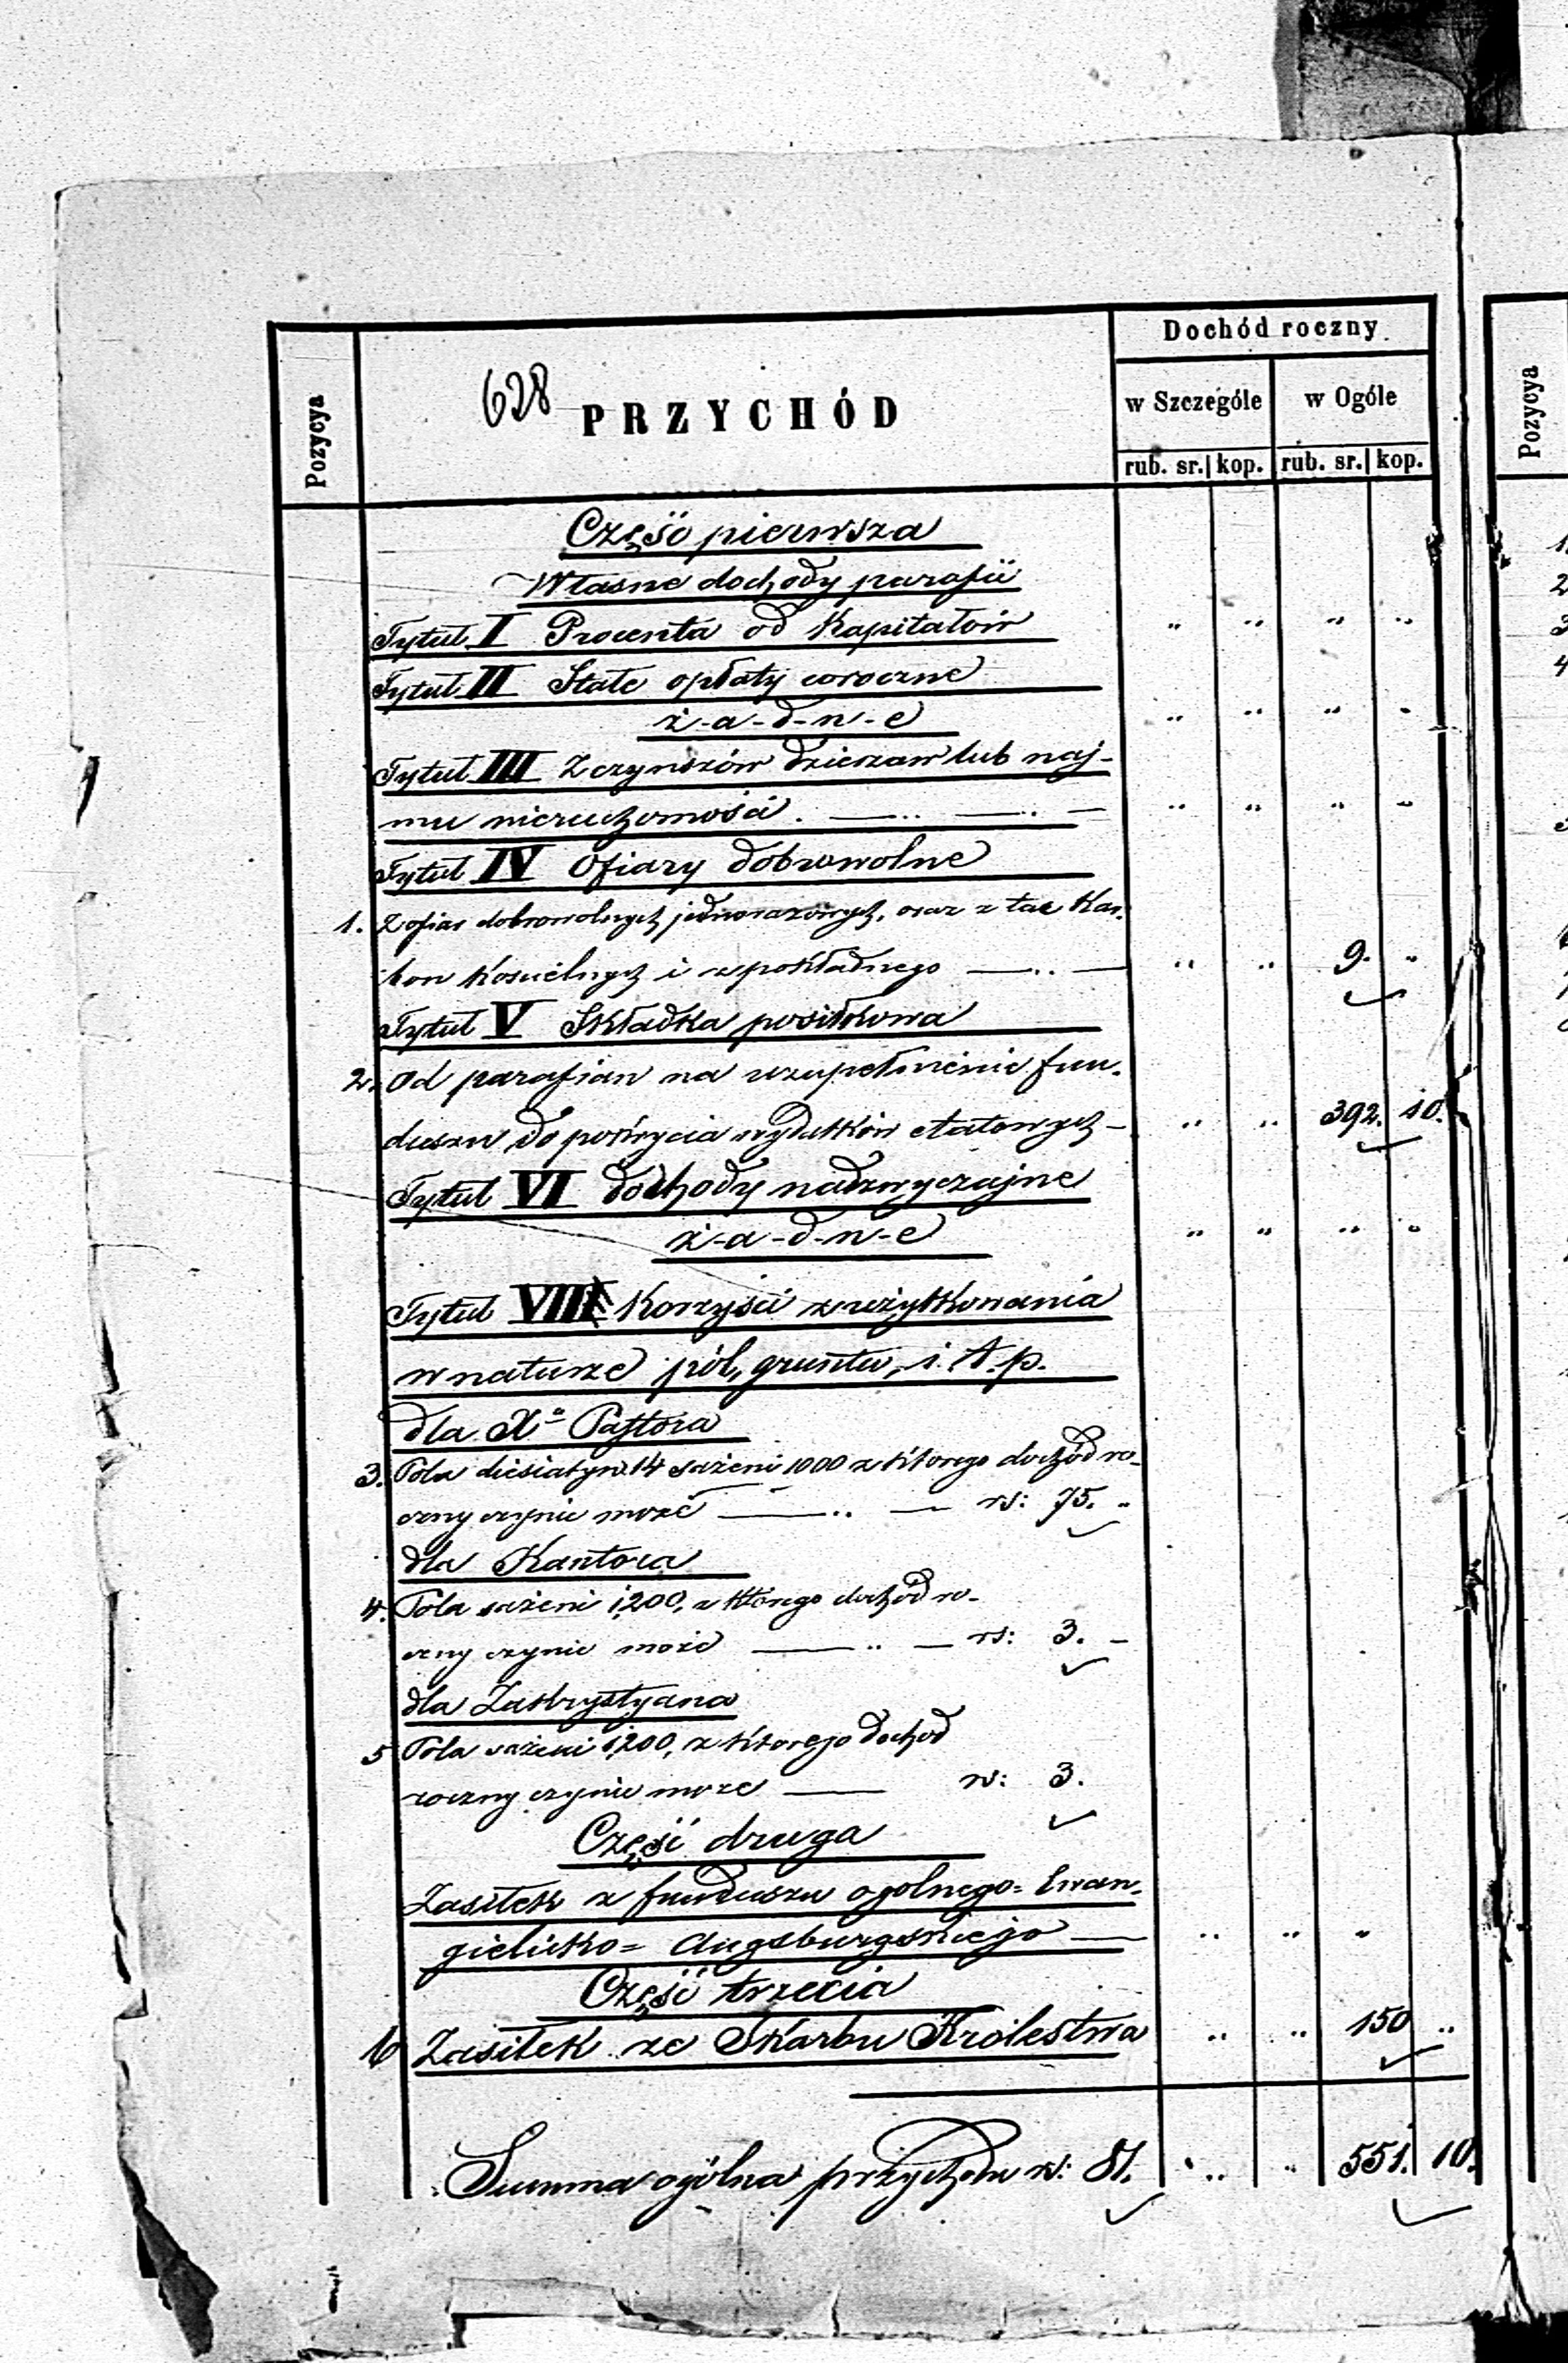 Dochód roczny
Pozycya
628
PRZYCHÓD
w Szczególe w Ogóle
Pozycya
rub. sr. kop. rub. sr. kop.
Część pierwsza
Własne dochody parafii
Tytuł I Procenta od Kapitałów " " " "
Tytuł II Stałe opłaty coroczne
ż-a-d-n-e " " " "
Tytuł III Z czynszów dzierzaw lub naj-
mu nieruchomości . — .. — .. — " " " "
Tytuł IV Ofiary dobrowolne
1. Z ofiar dobrowolnych jednorazowych, oraz z tac Kar-
bon Kościelnych i z pokładnego — .. — " " 9. "
Tytuł V Składka posiłkowa
2. Od parafian na uzupełnienie fun-
duszu do pokrycia wydatków etatowych — " " 392. 10.
Tytuł VI dochody nadzwyczajne
ż-a-d-n-e " " " "
Tytuł VII Korzyści z użytkowania
w naturze pól, gruntu, i. t. p.
dla Xa Pastora
3. Pola diesiatyn 14 sażeni 1000 z którego dochód ro-
czny czynić może — .. — rs: 75. "
dla Kantora
4. Pola sażeni 1,200, z którego dochód ro-
czny czynić może — .. — rs: 3. -
dla Zakrystyana
5 Pola sażeni 1,200, z którego dochód
roczny czynić może — rs: 3.
Część druga
Zasiłek z funduszu ogolnego= Ewan-
gielicko= Augsburgskiego — " " "
Część trzecia
6 Zasiłek ze Skarbu Królestwa " " 150 "
Summa ogólna przychodu rs: 81. " " 551. 10.